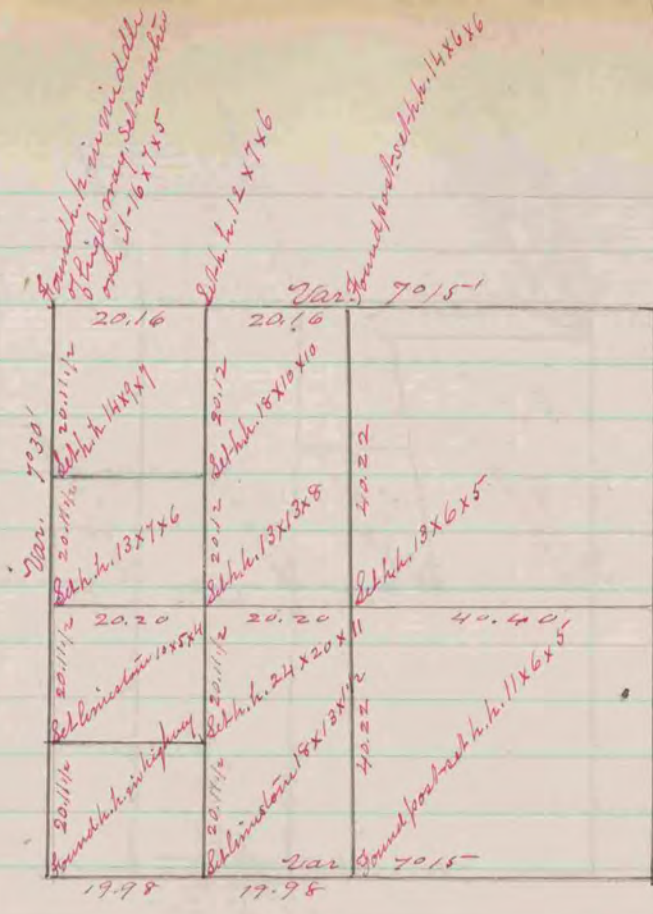 Found h.h. in middle
of highway, set another
over it - 16 x 7 x 5
Set h.h. 12 x 7 x 6
Found post - set h.h. 14 x 6 x 6
Var. 7° 15'
20.16
20.16
Var. 7° 30'
20.11 1/2
Set h.h. 14 x 9 x 7
20.12
Set h.h. 18 x 10 x 10
40.22
20.11 1/2
Set h.h. 13 x 7 x 6
20.12
Set h.h. 13 x 13 x 8
Set h.h. 13 x 6 x 5
20.20
20.20
40.40
20.11 1/2
Set limestone 10 x 5 x 4
20.11 1/2
Set h.h. 24 x 20 x 11
40.22
20.11 1/2
Found h.h. in highway
20.11 1/2
Set limestone 18 x 13 x 1 1/2
Found post - set h.h. 11 x 6 x 5
Var 7° 15
19.98
19.98